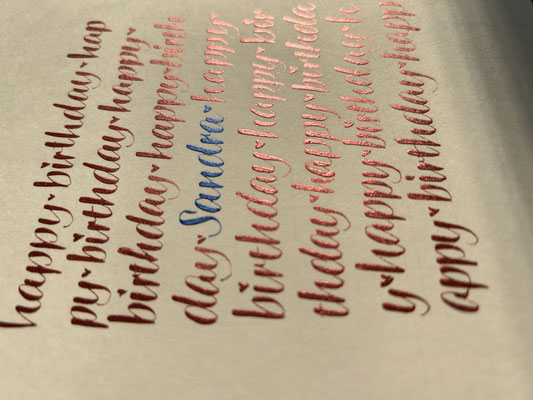 happy birthday hap
py birthday happy
birthday happy birth
day Sandra happy
birthday happy bir
thday happy birthda
y happy birthday h
appy birthday happ